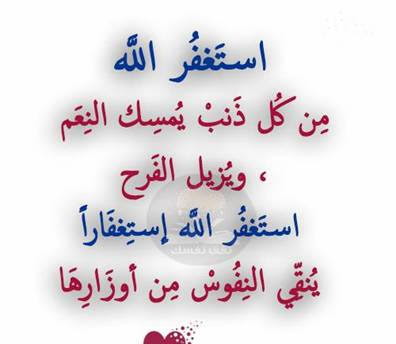 استَغفُر اللَّه
مِن كُل ذَنبْ يُمسِك النِعَم
، ويُزيل الفَرح
استَغفُر اللَّه إستِغفَاراً
يُنقِّي النِفُوسْ مِن أوزَارِهَا